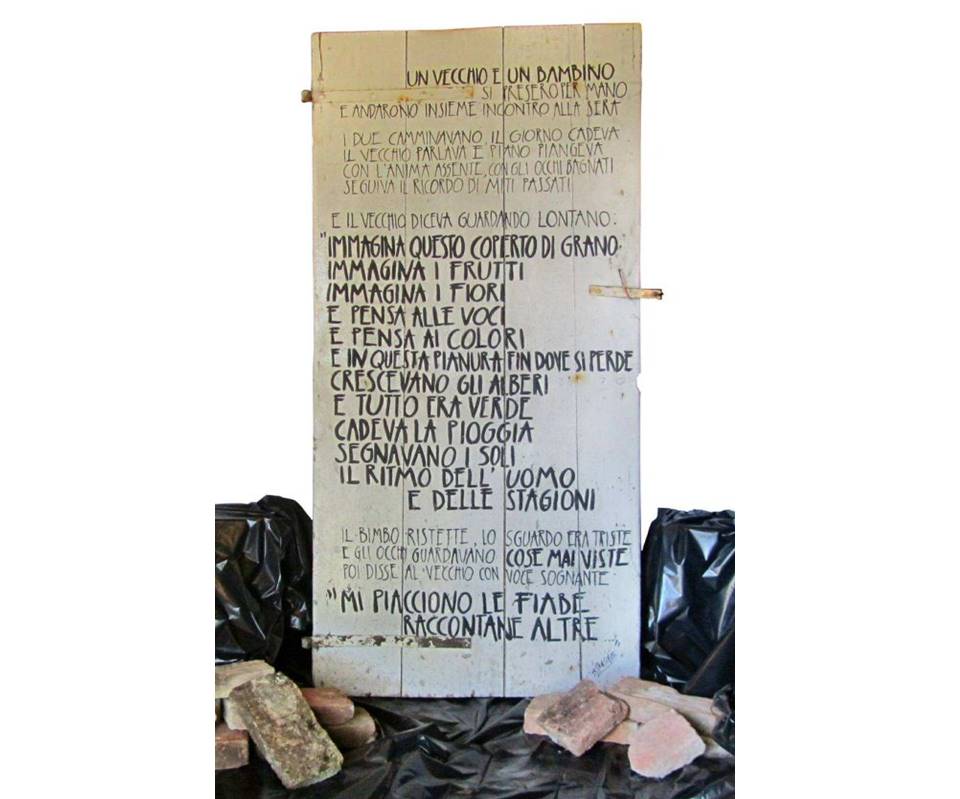 UN VECCHIO E UN BAMBINO
SI PRESERO PER MANO
E ANDARONO INSIEME INCONTRO ALLA SERA
I DUE CAMMINAVANO IL GIORNO CADEVA
IL VECCHIO PARLAVA E PIANO PIANGEVA
CON L'ANIMA ASSENTE, CON GLI OCCHI BAGNATI
SEGUIVA IL RICORDO DI MITI PASSATI
E IL VECCHIO DICEVA GUARDANDO LONTANO:
"IMMAGINA QUESTO COPERTO DI GRANO
IMMAGINA I FRUTTI
IMMAGINA I FIORI
E PENSA ALLE VOCI
E PENSA AI COLORI
E IN QUESTA PIANURA FIN DOVE SI PERDE
CRESCEVANO GLI ALBERI
E TUTTO ERA VERDE
CADEVA LA PIOGGIA
SEGNAVANO I SOLI
IL RITMO DELL' UOMO
E DELLE STAGIONI
IL BIMBO RISTETTE, LO SGUARDO ERA TRISTE
E GLI OCCHI GUARDAVANO COSE MAI VISTE
POI DISSE AL VECCHIO CON VOCE SOGNANTE
"MI PIACCIONO LE FIABE
RACCONTANE ALTRE ..."